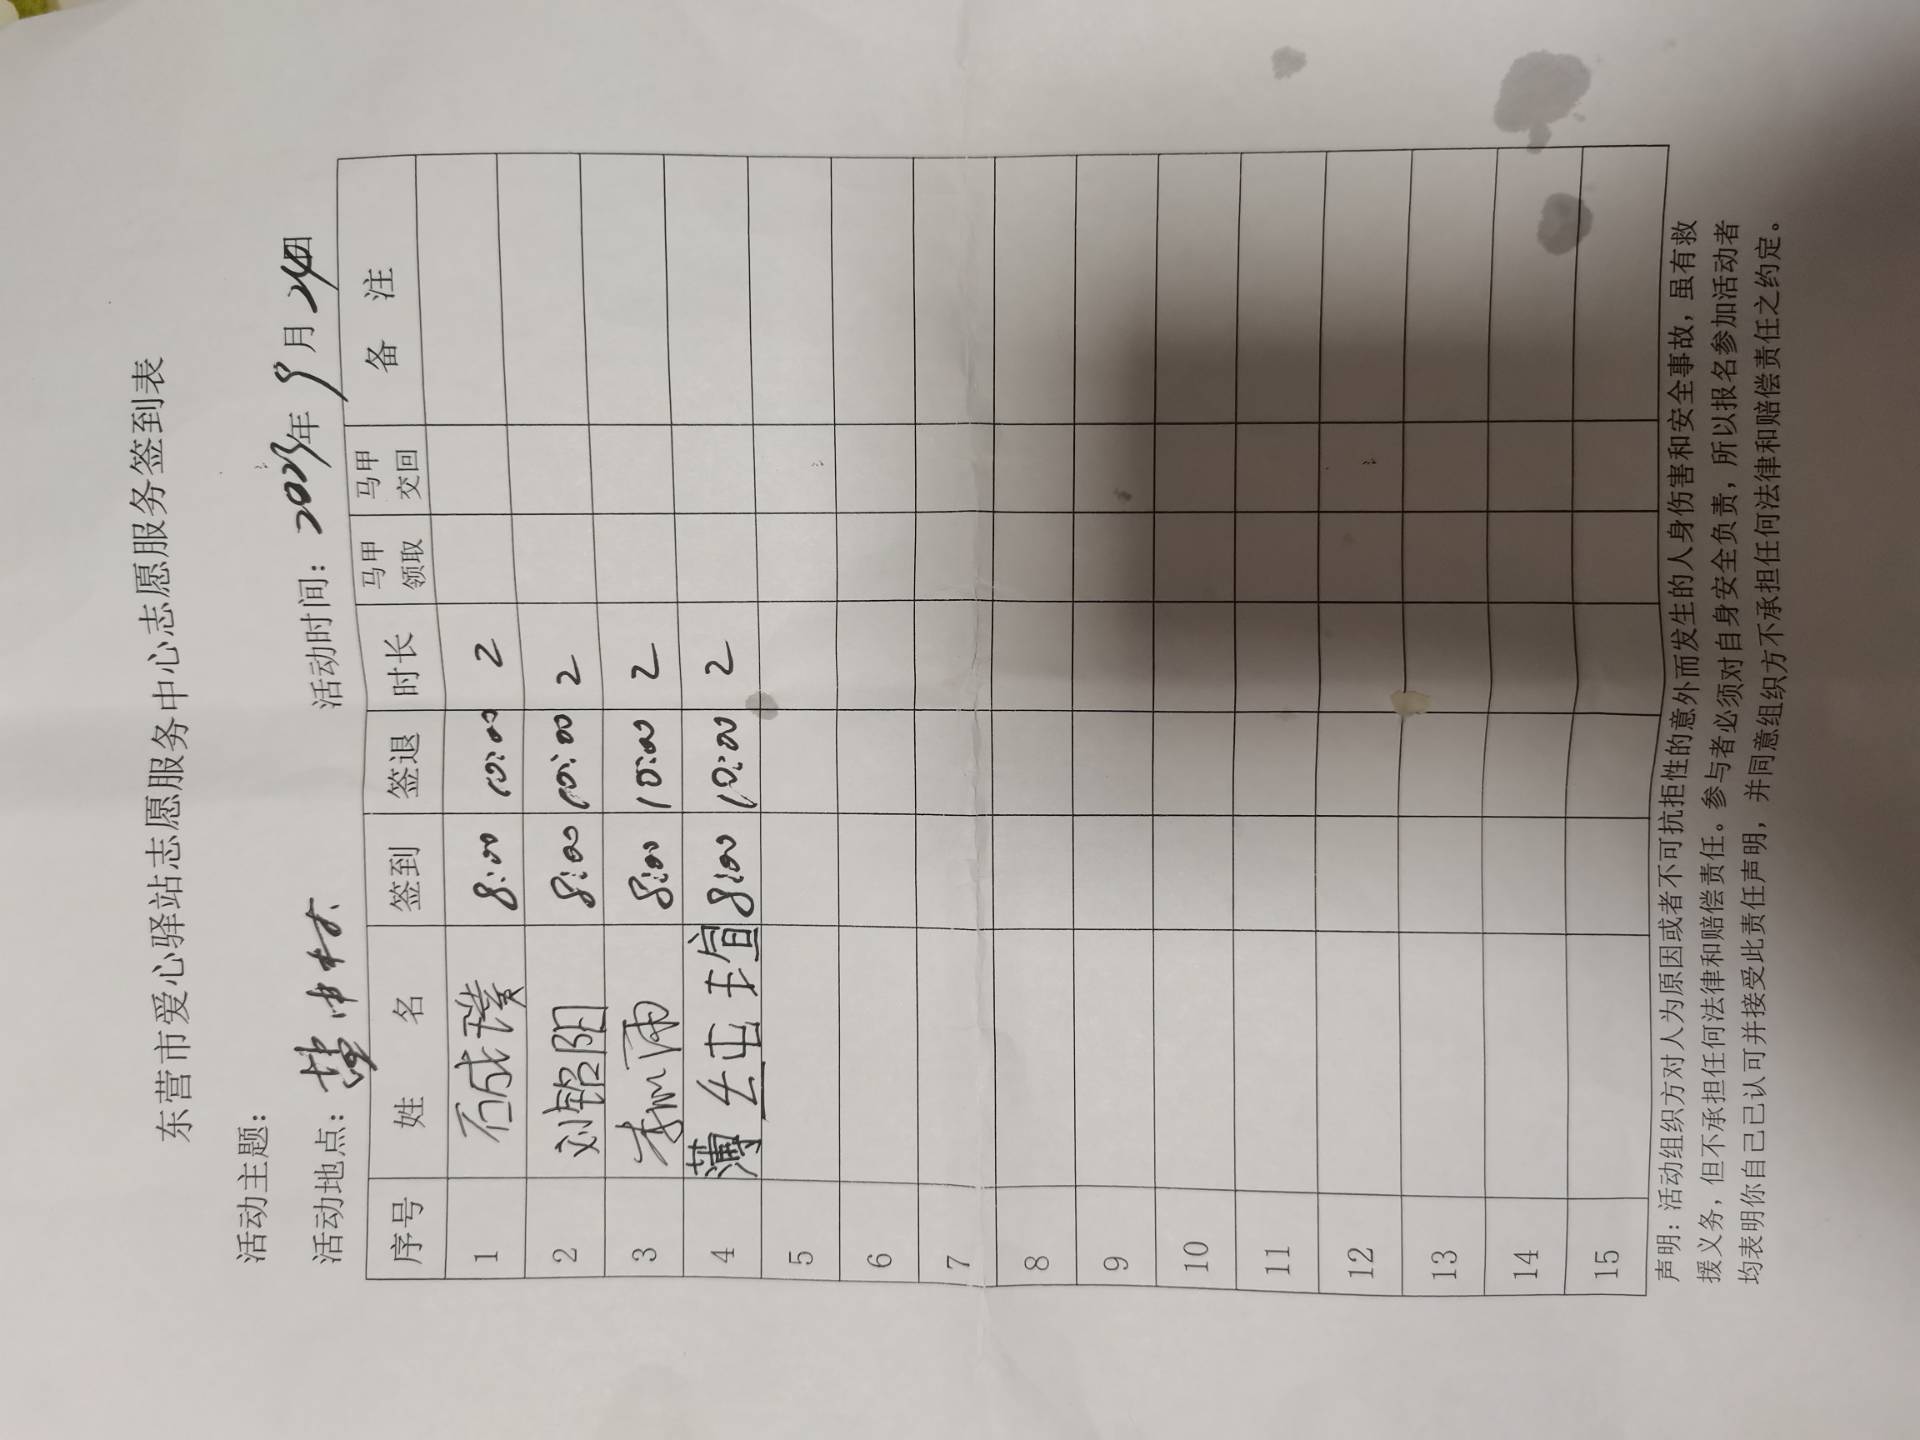 东营市爱心驿站志愿服务中心志愿服务签到表
活动主题：
活动地点： 活动时间：2023年9月24日
序号 姓 名 签到 签退 时长 马甲领取 马甲交回 备 注
1 石成璞 8:00 10:00 2
2 刘铭阳 8:00 10:00 2
3 8:00 10:00 2
4 薄 瑄 8:00 10:00 2
5
6
7
8
9
10
11
12
13
14
15
声明：活动组织方对人为原因或者不可抗拒性的意外而发生的人身伤害和安全事故，虽有救
援义务，但不承担任何法律和赔偿责任。参与者必须对自身安全负责，所以报名参加活动者
均表明你自己已认可并接受此责任声明，并同意组织方不承担任何法律和赔偿责任之约定。